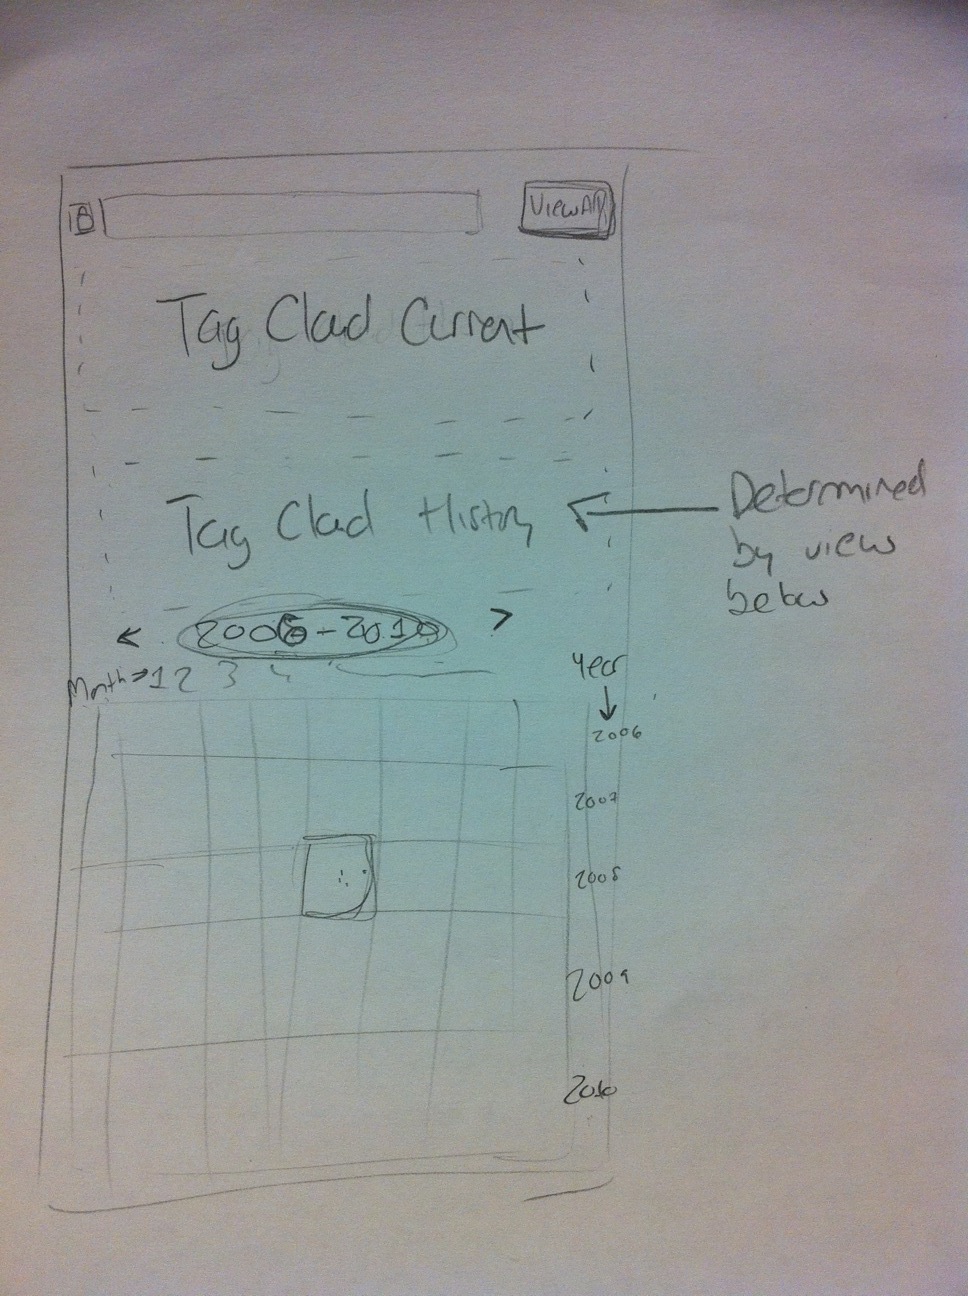 View All
Tag Cloud Current
Tag Cloud History
Determined
by view
below
< 2006-2010 >
Month→ 1 2 3 4
Year
2006
2007
2008
2009
2010